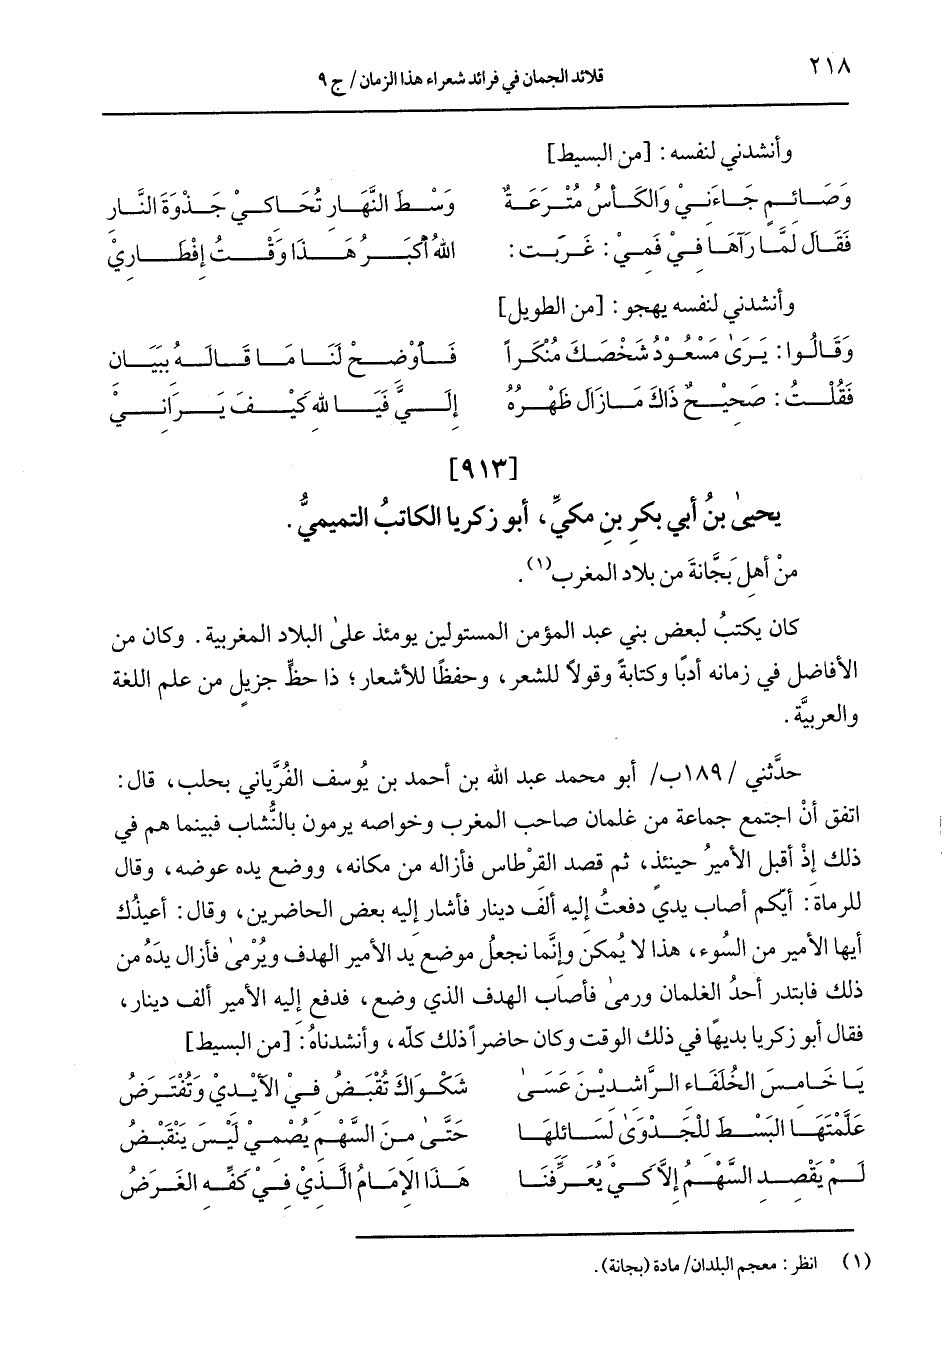 ٢١٨
قلائد الجمان في فرائد شعراء هذا الزمان / ج ٩
وأنشدني لنفسه : [من البسيط]
وَصَائِمٍ جَاءَنِيْ وَالكَأْسُ مُتْرَعَةٌ وَسْطَ النَّهَارِ تُحَاكِيْ جَذْوَةَ النَّارِ
فَقَالَ لَمَّا رَآهَا فِيْ فَمِيْ : غَرَبَت : اللهُ أَكْبَرُ هَذَا وَقْتُ إِفْطَارِيْ
وأنشدني لنفسه يهجو : [من الطويل]
وَقَالُوا : يَرَىٰ مَسْعُوْدُ شَخْصَكَ مُنْكَراً فَأَوْضِحْ لَنَا مَا قَالَهُ بِبَيَانِ
فَقُلْتُ : صَحِيْحٌ ذَاكَ مَازَالَ ظَهْرُهُ إِلَيَّ فَيَا للهِ كَيْفَ يَرَانِيْ
[٩١٣]
يحيىٰ بنُ أبي بكرِ بنِ مكيٍّ، أبو زكريا الكاتبُ التميميُّ .
منْ أهلِ بَجَّانةَ من بلاد المغرب(١).
كان يكتبُ لبعض بني عبد المؤمن المستولين يومئذ علىٰ البلاد المغربية . وكان من
الأفاضل في زمانه أدبًا وكتابةً وقولاً للشعر، وحفظًا للأشعار؛ ذا حظٍّ جزيلٍ من علم اللغة
والعربيَّة .
حدَّثني /١٨٩ب/ أبو محمد عبد الله بن أحمد بن يُوسف الفُرِّياني بحلب، قال :
اتفق أنْ اجتمع جماعة من غلمان صاحب المغرب وخواصه يرمون بالنُّشاب فبينما هم في
ذلك إذْ أقبل الأميرُ حينئذ، ثم قصد القرْطاس فأزاله من مكانه، ووضع يده عوضه، وقال
للرماة : أيّكم أصاب يدي دفعتُ إليه ألف دينار فأشار إليه بعض الحاضرين، وقال : أعيذُك
أيها الأمير من السُوء، هذا لا يُمكن وإنَّما نجعلُ موضع يد الأمير الهدف ويُرْمىٰ فأزال يدَهُ من
ذلك فابتدر أحدُ الغلمان ورمىٰ فأصاب الهدف الذي وضع، فدفع إليه الأمير ألف دينار،
فقال أبو زكريا بديهًا في ذلك الوقت وكان حاضراً ذلك كلّه، وأنشدناهُ : [من البسيط]
يَا خَامِسَ الخُلَفَاءِ الرَّاشِدِيْنَ عَسَىٰ شَكْوَاكَ تُقْبَضُ فِيْ الأَيْدِيْ وَتُفْتَرَضُ
عَلَّمْتَهَا البَسْطَ لِلْجَدْوَىٰ لِسَائِلِهَا حَتَّىٰ مِنَ السَّهْمِ يُصْمِيْ لَيْسَ يَنْقَبِضُ
لَمْ يَقْصِدِ السَّهْمُ إِلاَّ كَيْ يُعَرِّفَنَا هَذَا الإِمَامُ الَّذِيْ فِيْ كَفِّهِ الغَرَضُ
(١) انظر : معجم البلدان/ مادة (بجانة).